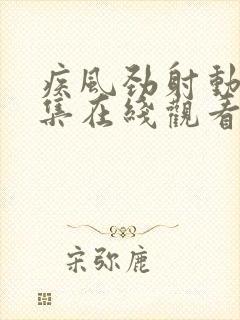 疾風勁射動
集在綫觀看
宋弥鹿